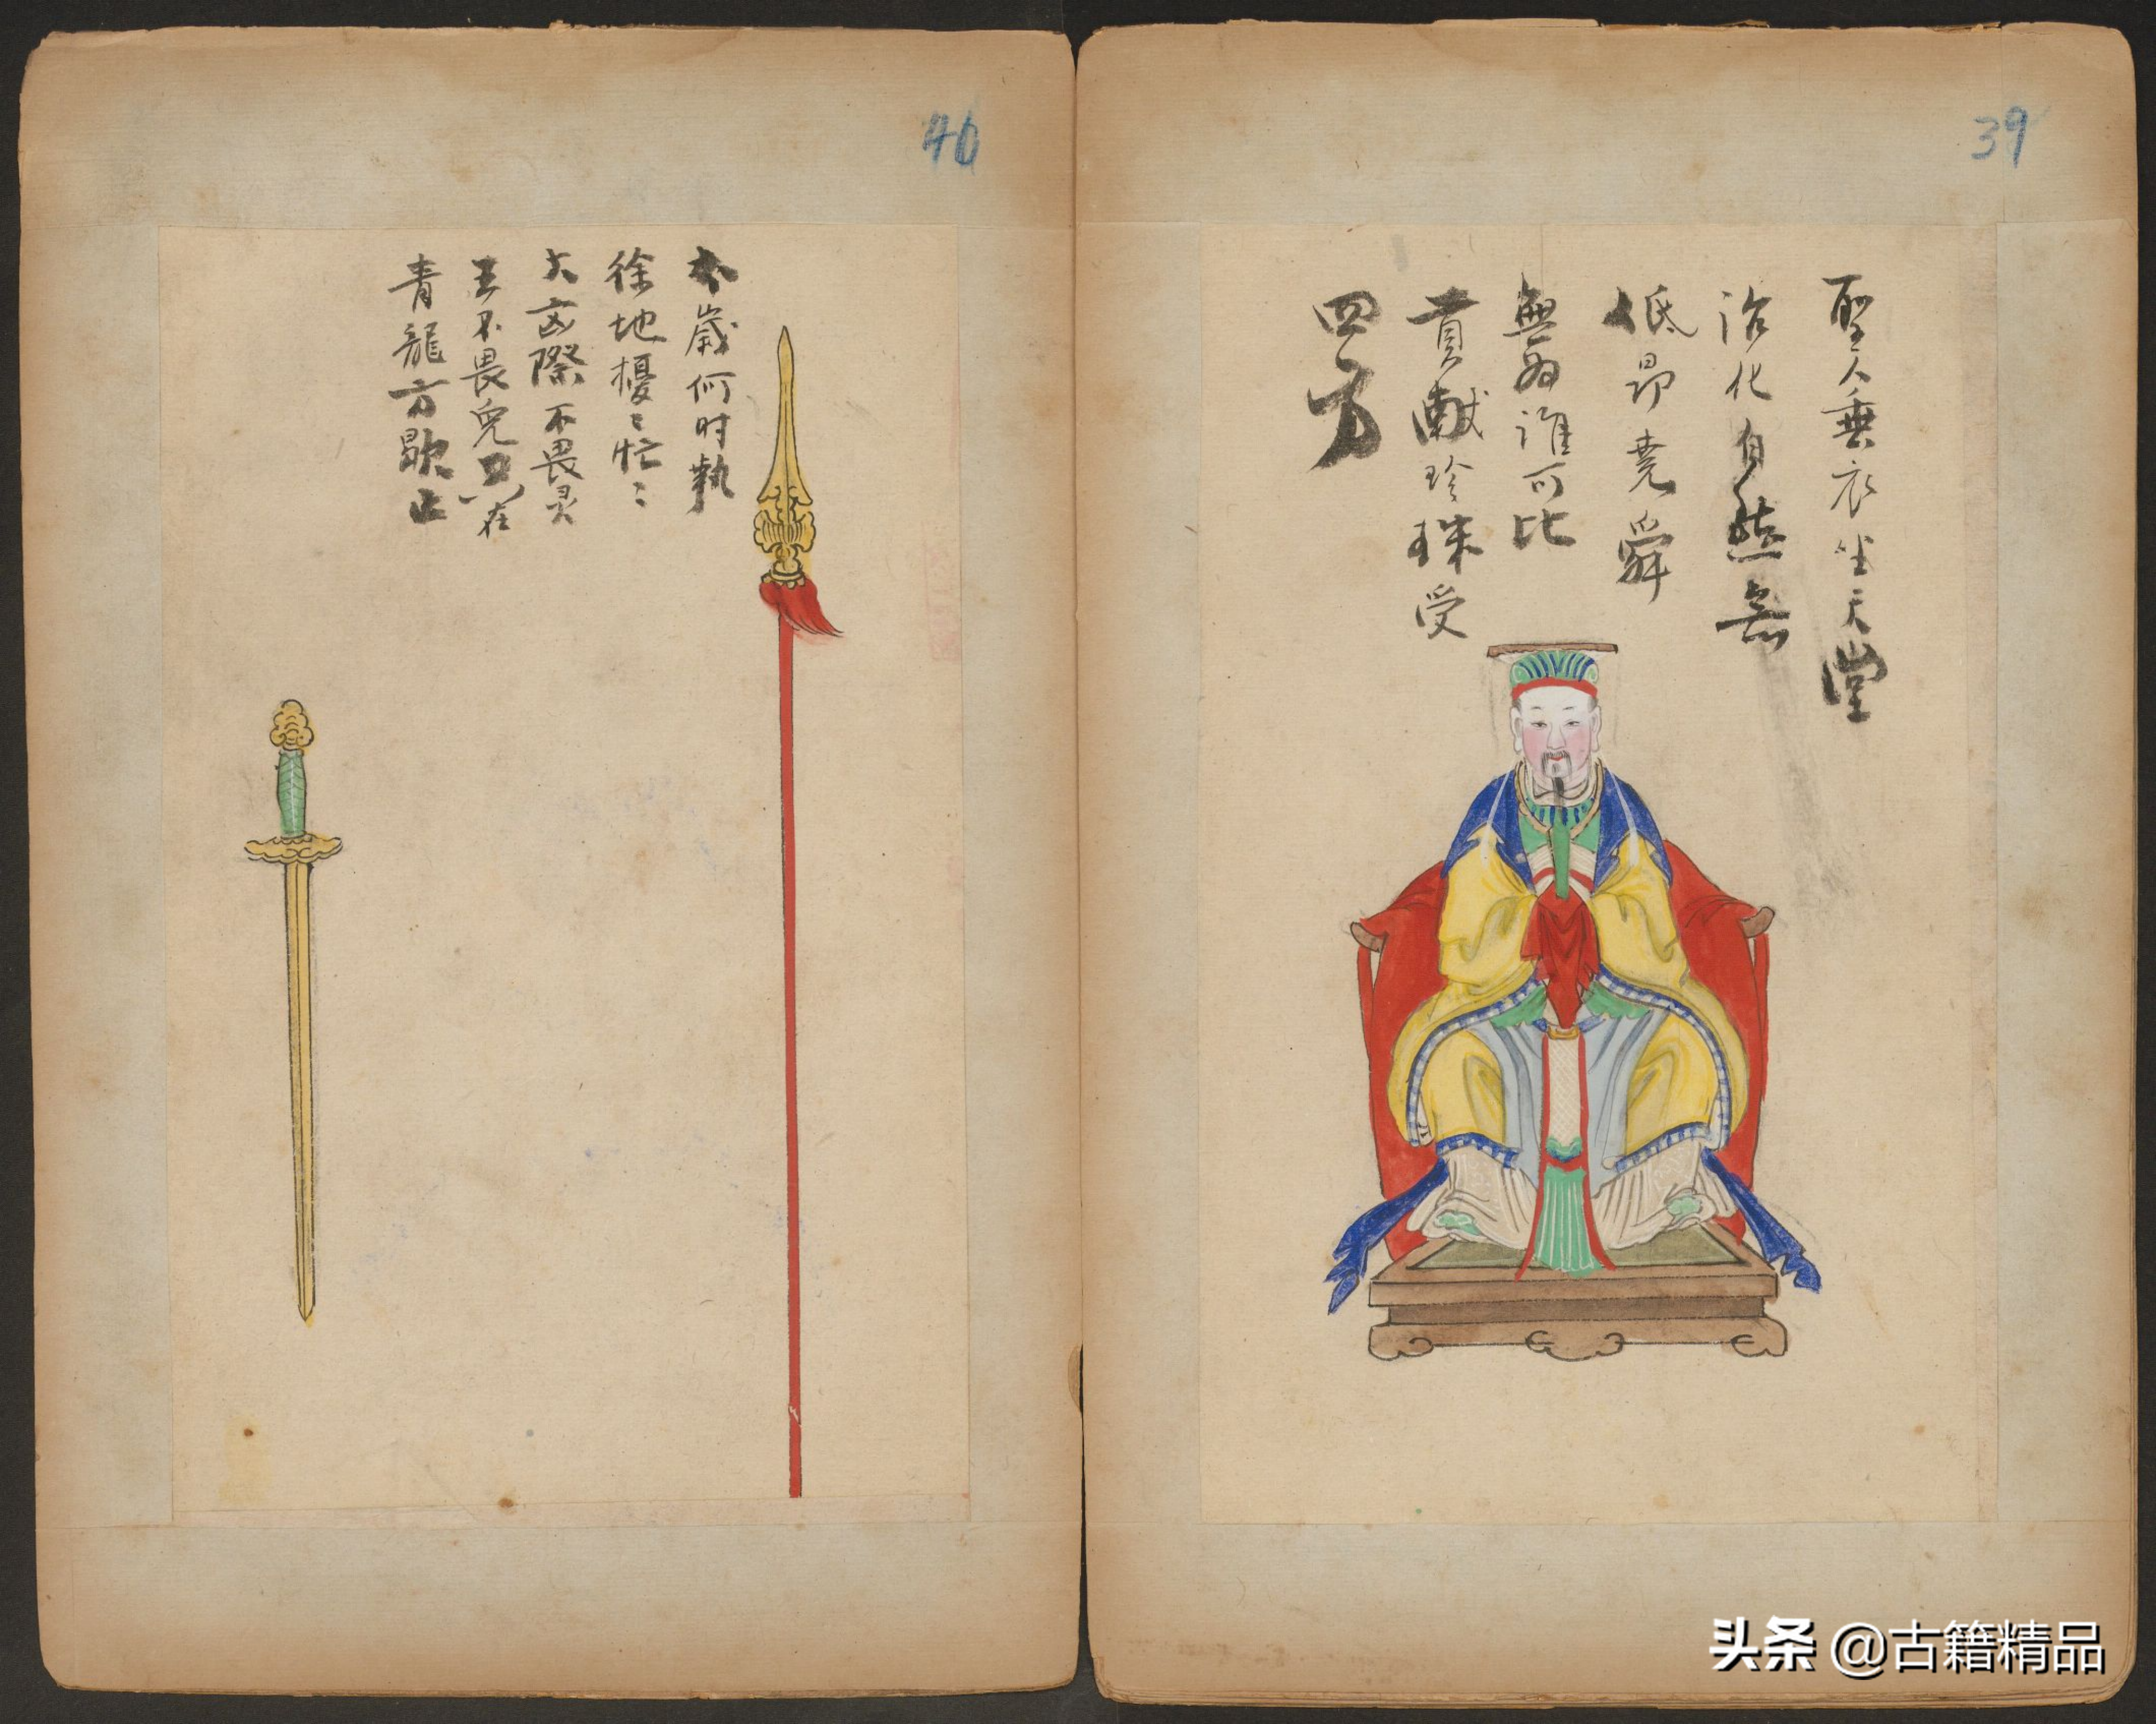 39
聖人垂衣坐天堂
治化自然無
低昂堯舜
無为誰可比
貢献珍珠受
四方
40
歲何时執
徐地擾〻忙〻
大 際不畏灵
王不畏鬼只在
青龍方歇止
头条 @古籍精品